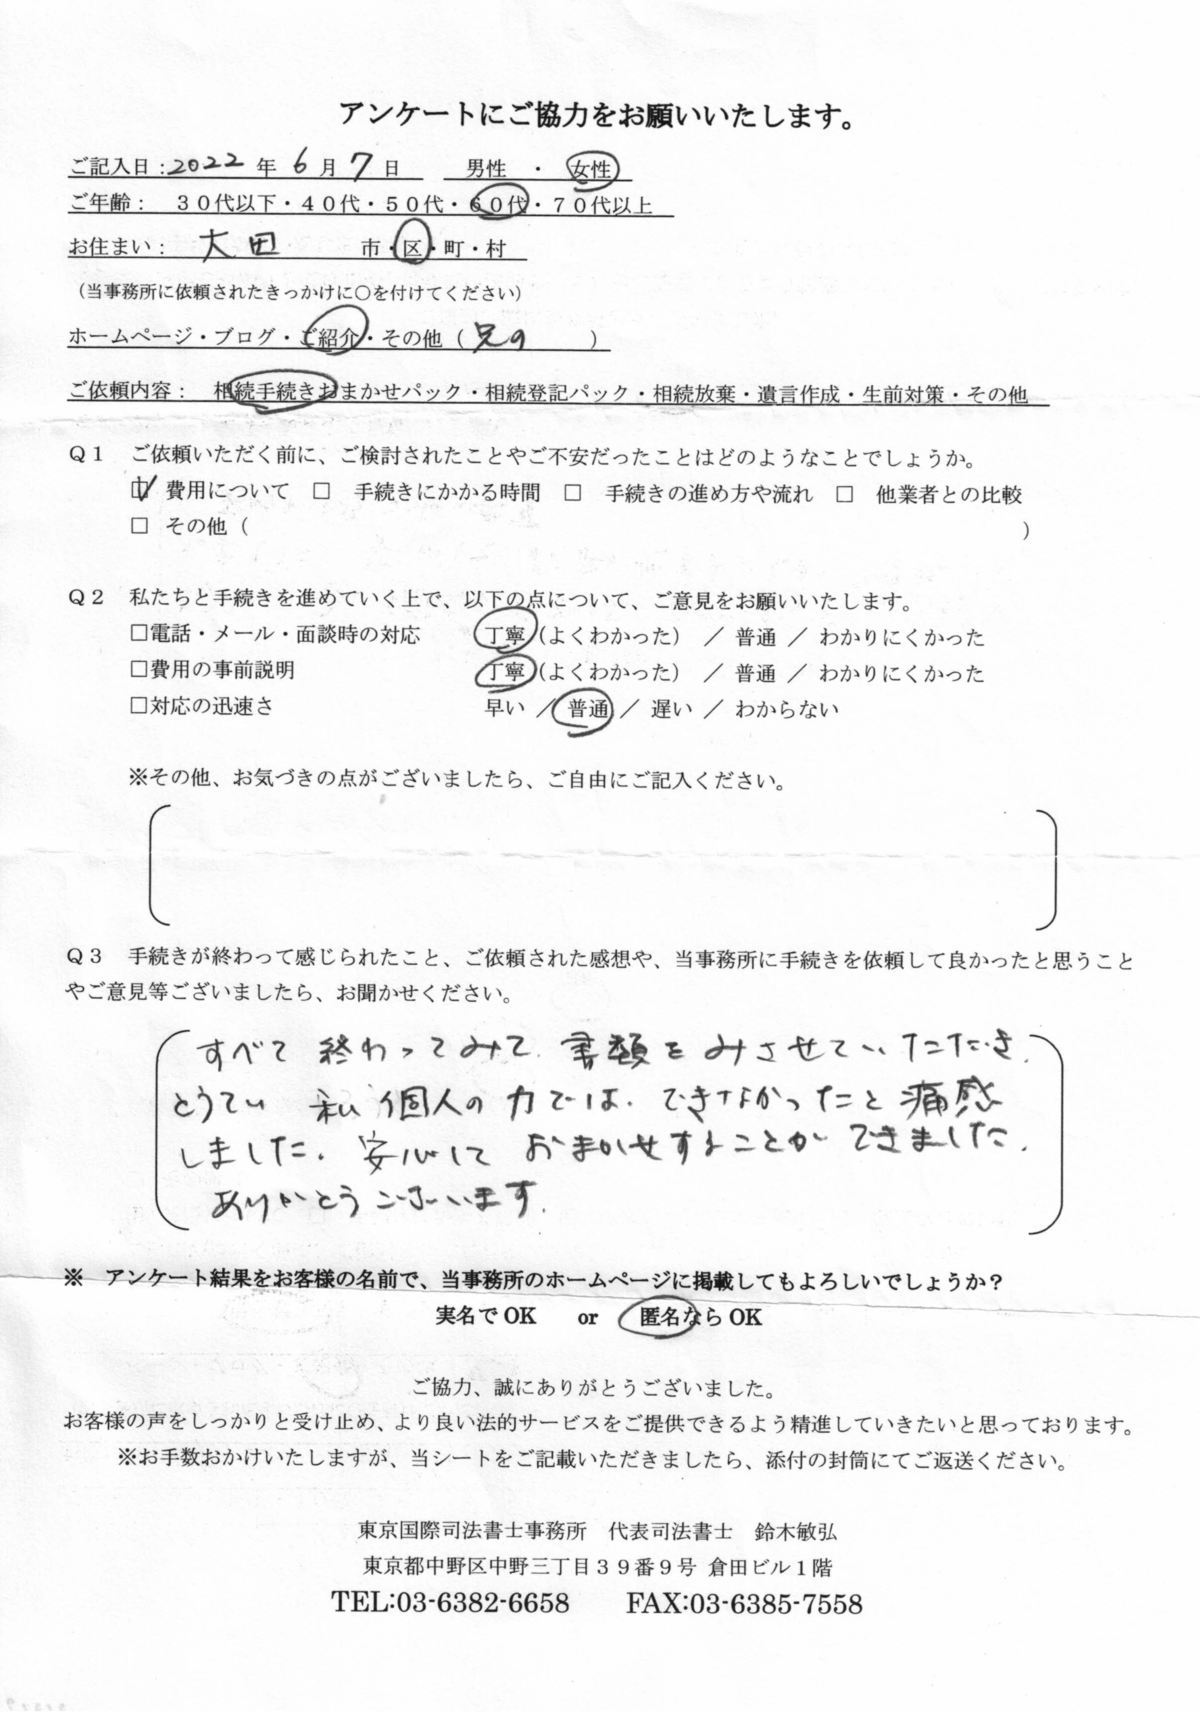 アンケートにご協力をお願いいたします。
ご記入日：2022 年 6 月 7 日　男性 ・ 女性
ご年齢：　３０代以下・４０代・５０代・６０代・７０代以上
お住まい：　大田　市・区・町・村
（当事務所に依頼されたきっかけに○を付けてください）
ホームページ・ブログ・ご紹介・その他（ 兄の　）
ご依頼内容：　相続手続きおまかせパック・相続登記パック・相続放棄・遺言作成・生前対策・その他
Ｑ１　ご依頼いただく前に、ご検討されたことやご不安だったことはどのようなことでしょうか。
☑ 費用について □ 手続きにかかる時間 □ 手続きの進め方や流れ □ 他業者との比較
□ その他（　）
Ｑ２　私たちと手続きを進めていく上で、以下の点について、ご意見をお願いいたします。
□電話・メール・面談時の対応　丁寧（よくわかった） ／ 普通 ／ わかりにくかった
□費用の事前説明　丁寧（よくわかった） ／ 普通 ／ わかりにくかった
□対応の迅速さ　早い ／ 普通 ／ 遅い ／ わからない
※その他、お気づきの点がございましたら、ご自由にご記入ください。
Ｑ３　手続きが終わって感じられたこと、ご依頼された感想や、当事務所に手続きを依頼して良かったと思うこと
やご意見等ございましたら、お聞かせください。
すべて 終わってみて、書類をみさせていただき、
とうてい 私個人の力では、できなかったと痛感
しました。安心して おまかせすることができました。
ありがとうございます。
※　アンケート結果をお客様の名前で、当事務所のホームページに掲載してもよろしいでしょうか？
実名で OK　or　匿名なら OK
ご協力、誠にありがとうございました。
お客様の声をしっかりと受け止め、より良い法的サービスをご提供できるよう精進していきたいと思っております。
※お手数おかけいたしますが、当シートをご記載いただきましたら、添付の封筒にてご返送ください。
東京国際司法書士事務所　代表司法書士　鈴木敏弘
東京都中野区中野三丁目３９番９号 倉田ビル１階
TEL:03-6382-6658　FAX:03-6385-7558